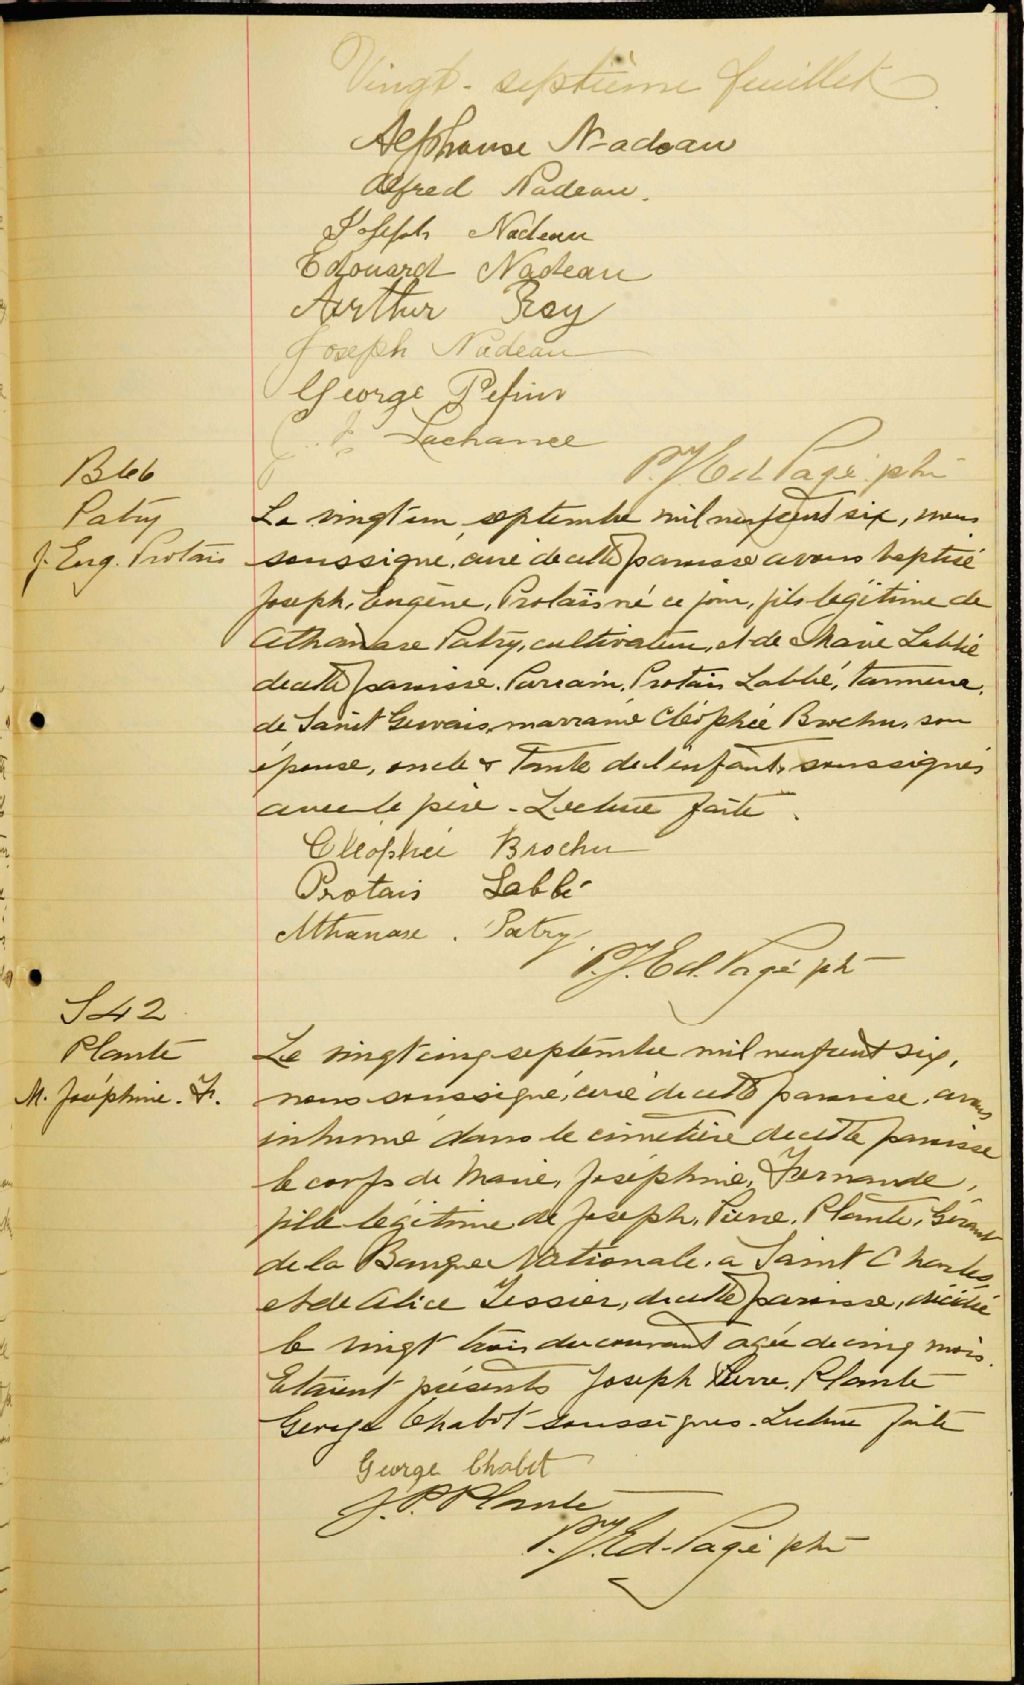 Vingt-septième feuillet
Alphonse Nadeau
Alfred Nadeau.
Joseph Nadeau
Edouard Nadeau
Arthur Roy
Joseph Nadeau
George Pepin
Lachance
P. J. Ed. Pagé ptre
B66
Patry
J. Eug. Protais
Le vingt un septembre mil neuf cent six, nous
soussigné, curé de cette paroisse avons baptisé
Joseph, Eugène, Protais né ce jour, fils légitime de
Athanase Patry, cultivateur, et de Marie Labbé
de cette paroisse. Parrain, Protais Labbé, tanneur,
de Saint Gervais, marraine Cléophée Brochu, son
épouse, oncle & tante de l'enfant, soussignés
avec le père - Lecture faite.
Cléophée Brochu
Protais Labbé
Athanase. Patry
P. J. Ed. Pagé ptre
S42
Plante
M. Joséphine. F.
Le vingt cinq septembre mil neuf cent six,
nous soussigné, curé de cette paroisse, avons
inhumé dans le cimetière de cette paroisse
le corps de Marie, Joséphine, Fernande,
fille légitime de Joseph, Pierre, Plante, Gérant
de la Banque Nationale, à Saint Charles,
et de Alice Tessier, de cette paroisse, décédée
le vingt trois du courant agée de cinq mois.
Etaient présents Joseph Pierre Plante
George Chabot soussignés. Lecture faite
George Chabot
J. P. Plante
P. J. Ed. Pagé ptre